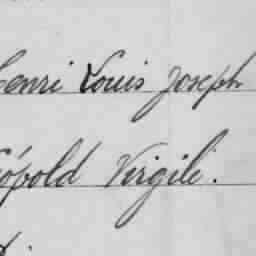 Henri Louis Joseph
Léopold Virgile.